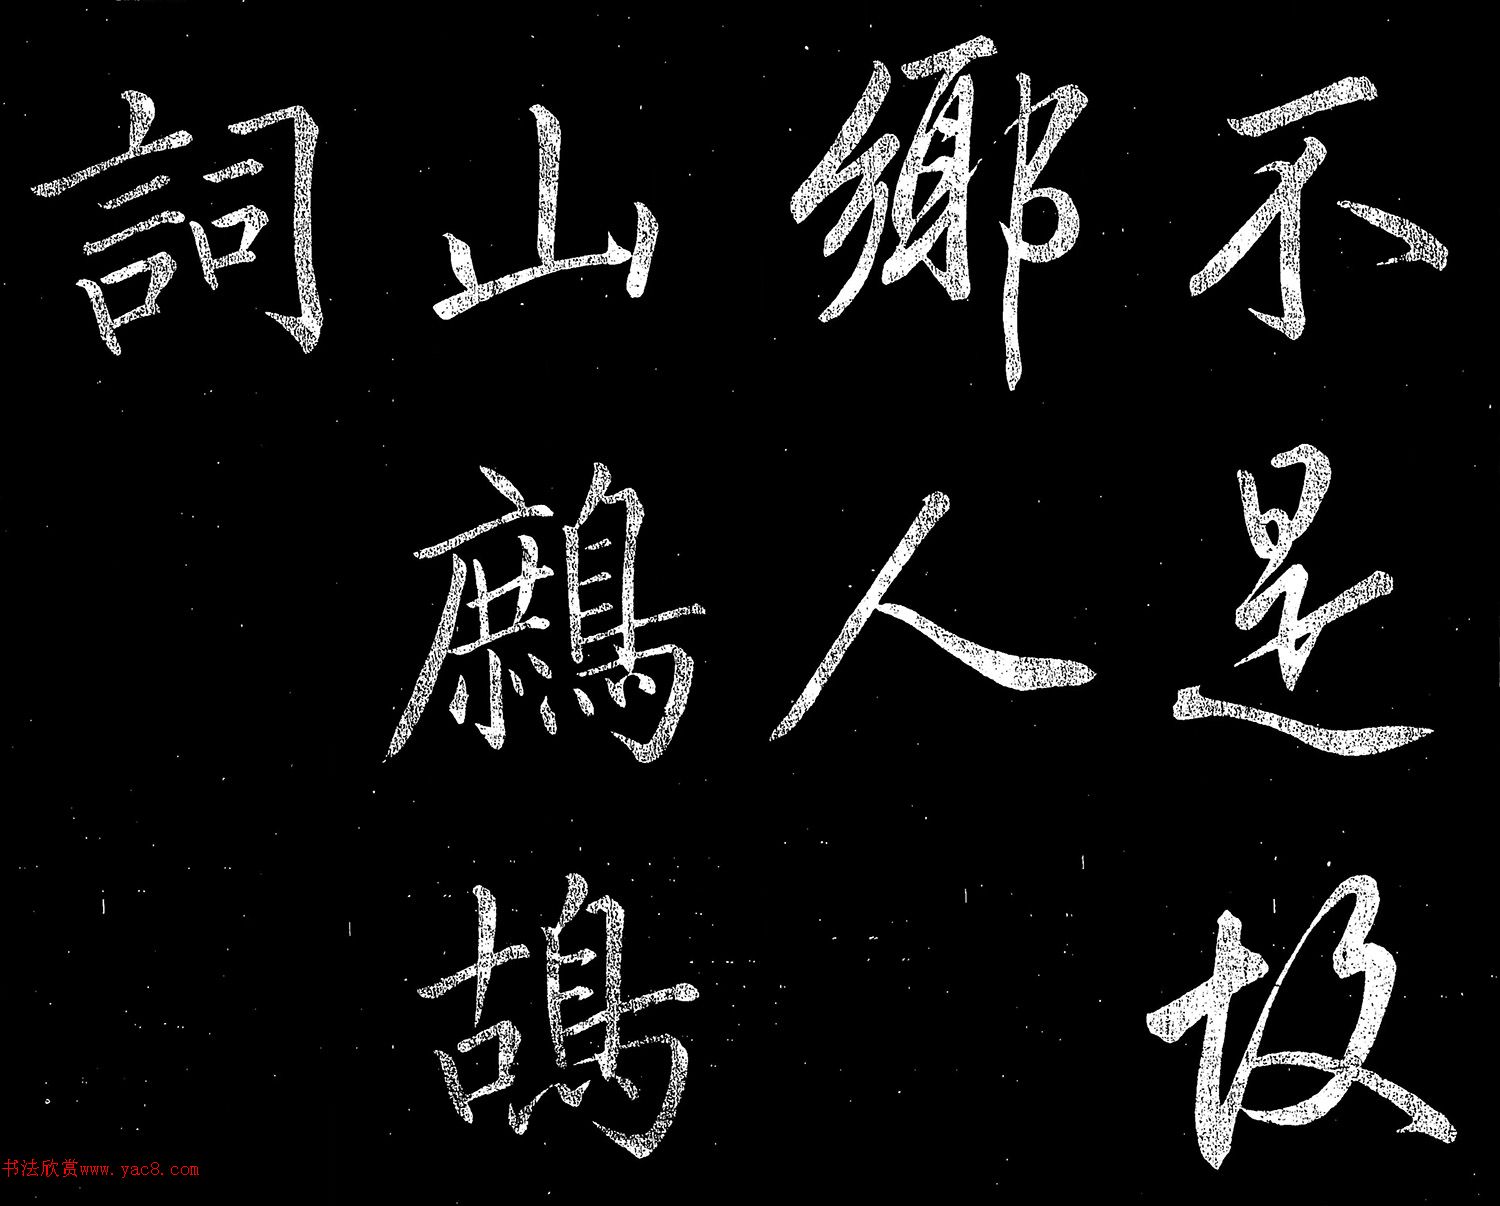 不是故
鄉人
山鷓鴣
詞
书法欣赏www.yac8.com